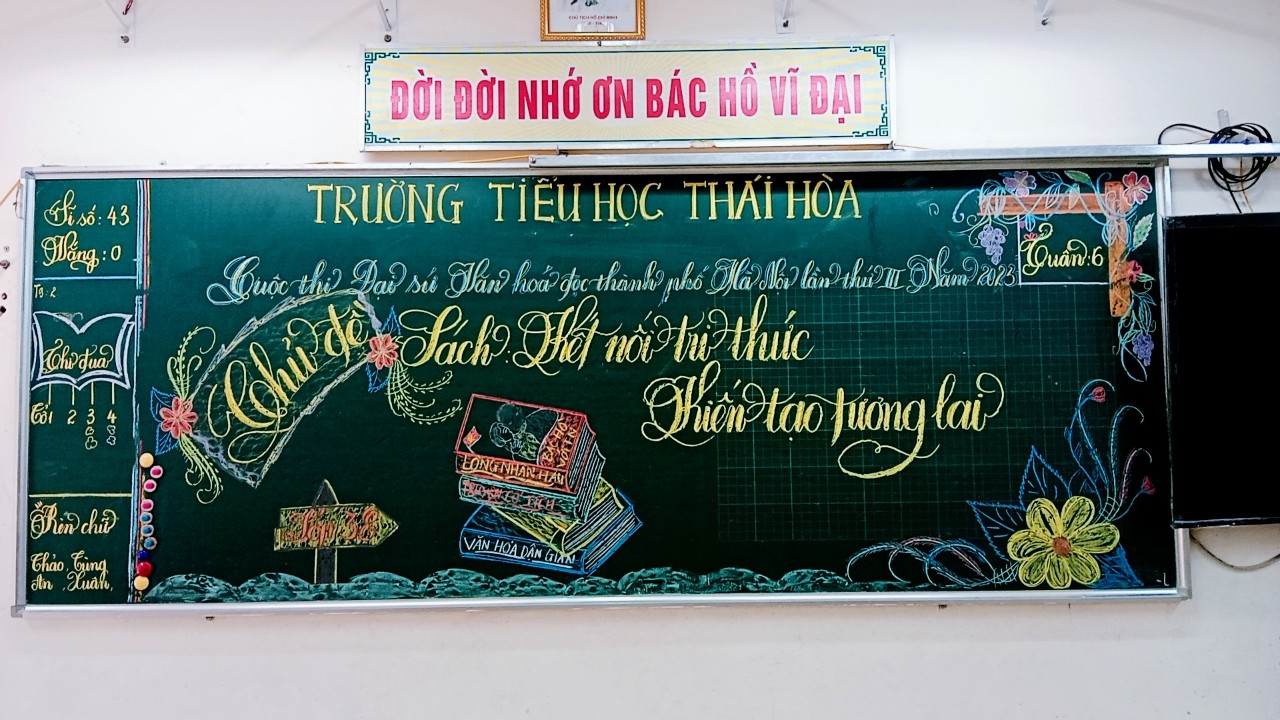 CHỦ TỊCH HỒ CHÍ MINH
ĐỜI ĐỜI NHỚ ƠN BÁC HỒ VĨ ĐẠI
TRƯỜNG TIỂU HỌC THÁI HÒA
Sĩ số: 43
Vắng: 0
Tuần: 6
Cuộc thi Đại sứ Văn hoá đọc thành phố Hà Nội lần thứ III Năm 2023
Chủ đề
Sách: Kết nối tri thức
Kiến tạo tương lai
Tg: 2
Thi đua
Tổ 1 2 3 4
LÒNG NHÂN HẬU
TRUYỆN CỔ TÍCH
VĂN HÓA DÂN GIAN
Rèn chữ
Thảo, Tùng
An, Xuân,